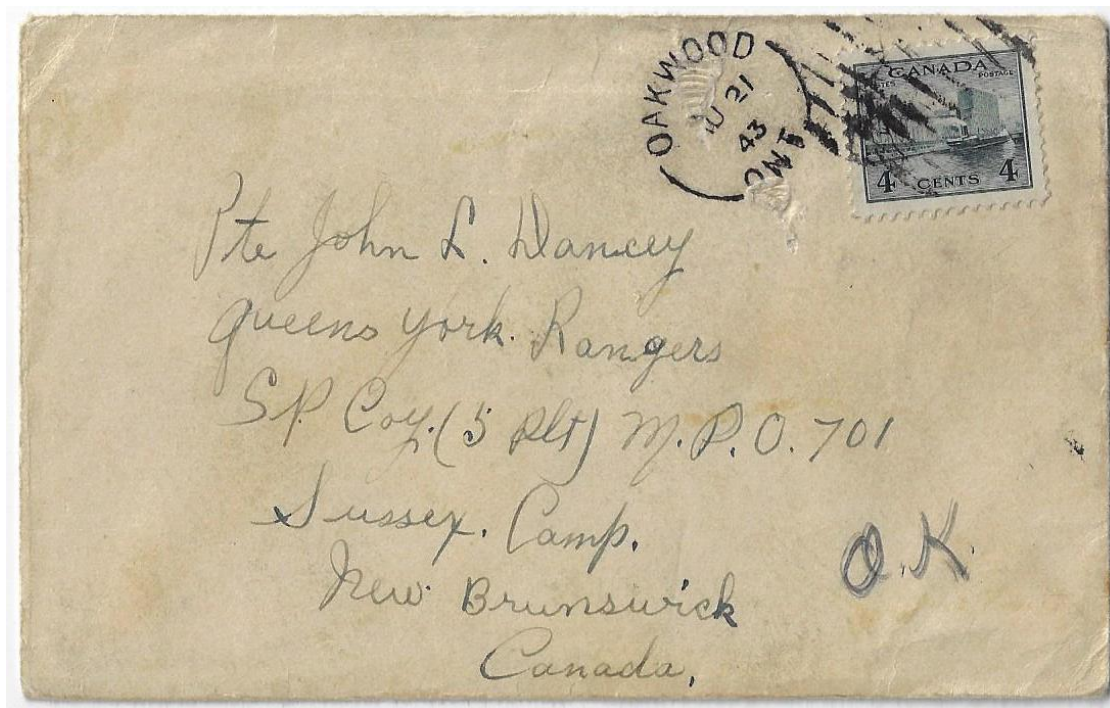 OAKWOOD
21
43
ONT
CANADA
POSTAGE
4 CENTS 4
Pte John L. Dancey
Queens York. Rangers
S.P. Coy. (5 Plt) M.P.O. 701
Sussex. Camp.
New Brunswick
Canada,
O.K.